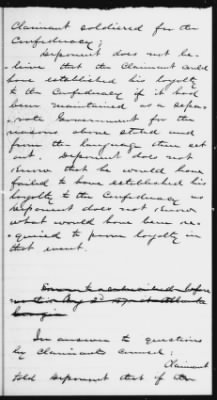 Claimant soldiered for the
Confederacy;
Deponent does not be-
lieve that the Claimant could
have established his loyalty
to the Confederacy if it had
been maintained as a sepa-
rate Government for the
reasons above stated and
from the language then set
out. Deponent does not
know that he would have
failed to have established his
loyalty to the Confederacy as
deponent does not know
what would have been re-
quired to prove loyalty in
that event.
Sworn to & subscribed before
In answer to questions
by Claimants Counsel;
Claimant
told deponent that if the